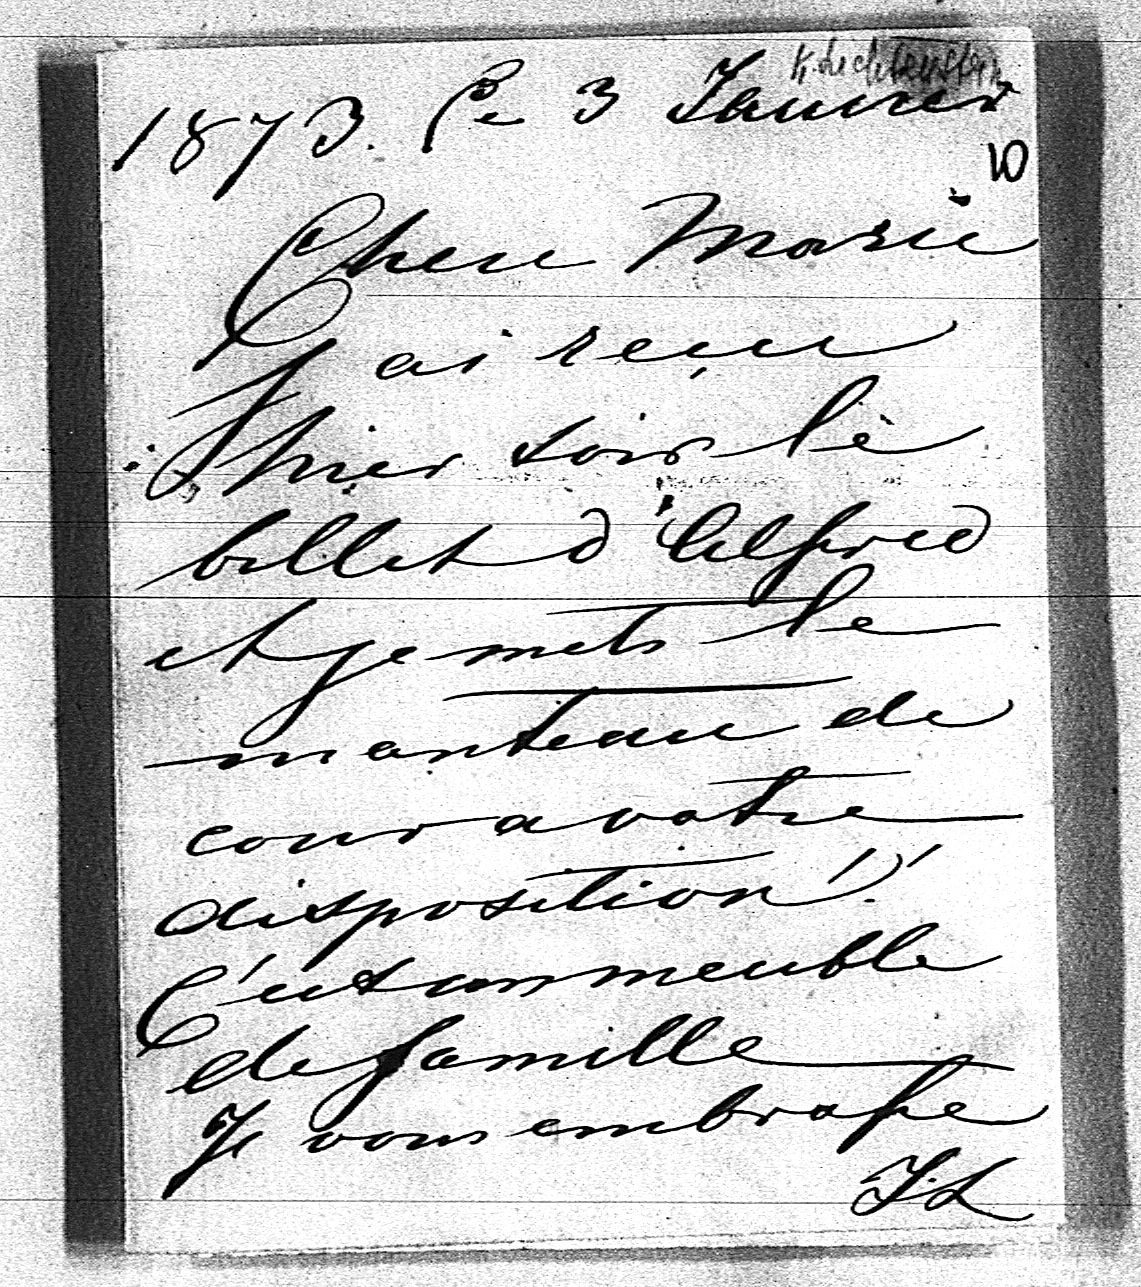 K. Lichtenstein
1873. Ce 3 Janvier
10
Chere Marie
J ai reçu
hier soir le
billet d'Alfred
et je mets le
manteau de
cour a votre
disposition!!
C'est un meuble
de famille
Je vous embrasse
F. L